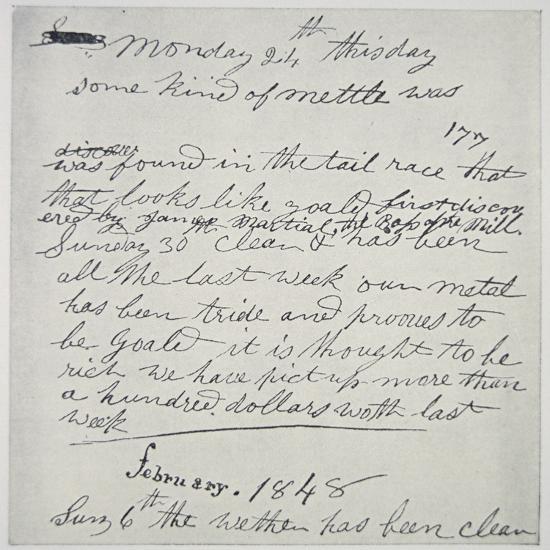 Monday 24th this day
some kind of mettle was
177
discover
was found in the tail race that
that looks like goald first discov
ered by James Martial, the Boss of the Mill.
Sunday 30 clear & has been
all the last week our metal
has been tride and prooves to
be Goald it is thought to be
rich we have pict up more than
a hundred dollars woth last
week
february. 1848
Sun 6th the wether has been clear